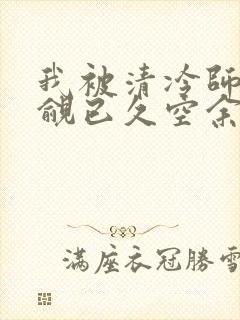 我被清冷師
覦已久空余
滿座衣冠勝雪